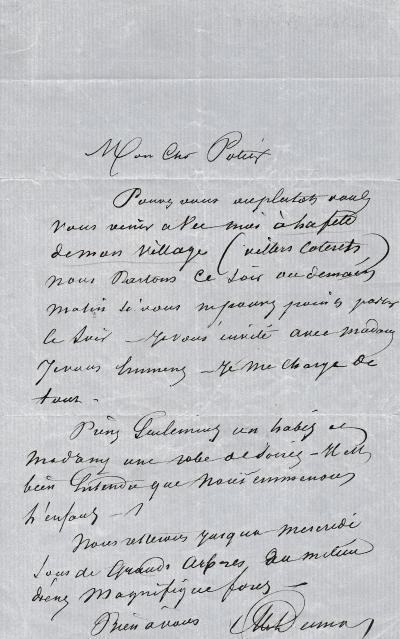 Mon cher Potier
Pouvez vous ou plutot voulez
vous venir avec moi à la fete
de mon village (villers coterets)
nous Partons ce soir ou demain
matin si vous ne pouvez point partir
ce soir – Je vous invite avec madame
Je vous emmene – Je me charge de
tout –
Prenez seulement un habit et
madame une robe de soirée – Il est
bien Entendu que nous emmenons
l'enfant –
Nous resterons jusqu'a mercredi
sous de Grands Arbres, au milieu
d'une Magnifique foret –
Bien à vous Alex Dumas